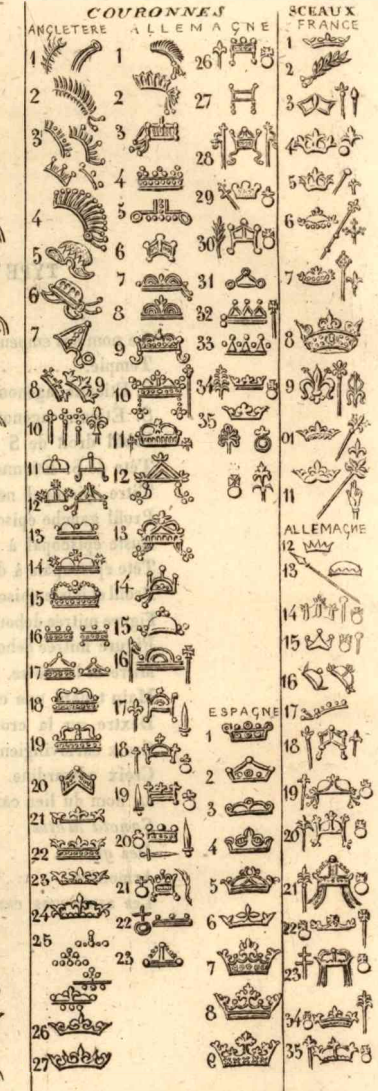 COURONNES
ANGLETERE
1
2
3
4
5
6
7
8 9
10
11
12
13
14
15
16
17
18
19
20
21
22
23
24
25
26
27
ALLEMAÇNE
1
2
3
4
5
6
7
8
9
10
11
12
13
14
15
16
17
18
19
20
21
22
23
26
27
28
29
30
31
32
33
34
35
ESPAGNE
1
2
3
4
5
6
7
8
9
SCEAUX
FRANCE
1
2
3
4
5
6
7
8
9
01
11
ALLEMAÇNE
12
13
14
15
16
17
18
19
20
21
22
23
34
35